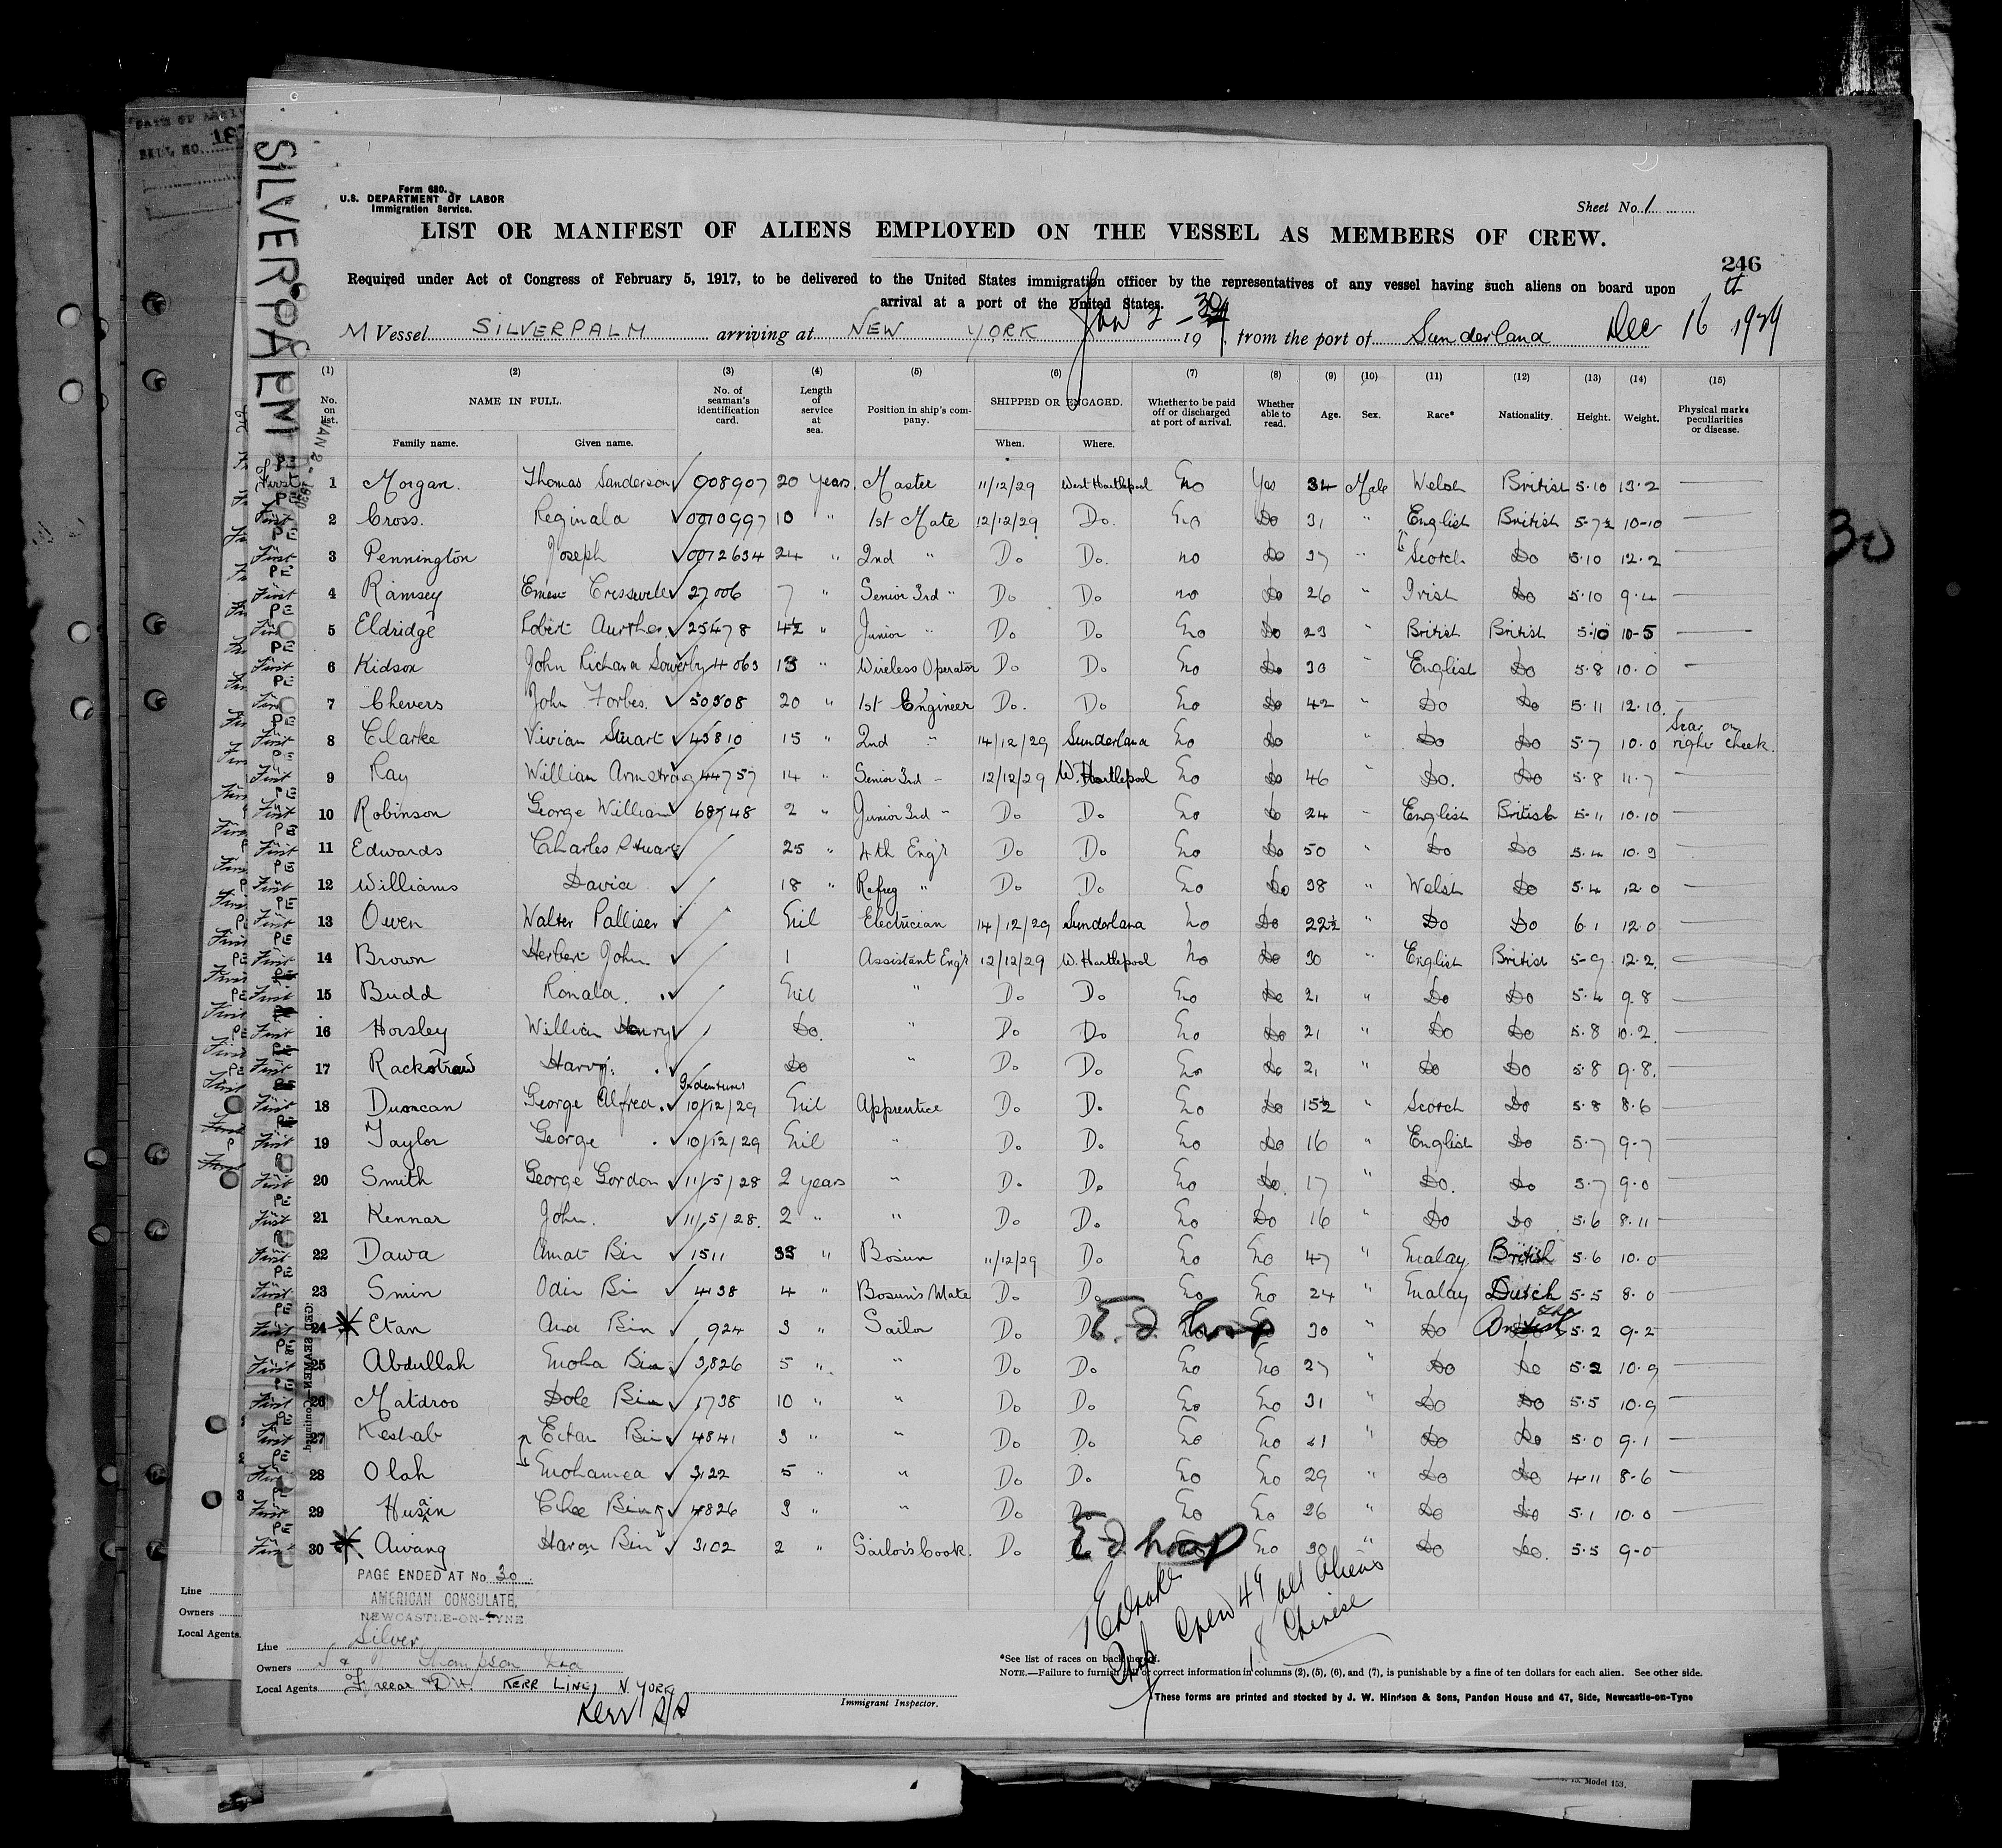 SILVERPALM
Form 680.
U.S. DEPARTMENT OF LABOR
Immigration Service.
Sheet No. 1
LIST OR MANIFEST OF ALIENS EMPLOYED ON THE VESSEL AS MEMBERS OF CREW.
246
Required under Act of Congress of February 5, 1917, to be delivered to the United States immigration officer by the representatives of any vessel having such aliens on board upon
arrival at a port of the United States.
M Vessel SILVERPALM arriving at NEW YORK Jan 2 - 30 19 from the port of Sunderland Dec 16th 1929
(1) (2) (3) (4) (5) (6) (7) (8) (9) (10) (11) (12) (13) (14) (15)
No. on list. NAME IN FULL. Family name. Given name. No. of seaman's identification card. Length of service at sea. Position in ship's company. SHIPPED OR ENGAGED. When. Where. Whether to be paid off or discharged at port of arrival. Whether able to read. Age. Sex. Race* Nationality. Height. Weight. Physical marks peculiarities or disease.
1 Morgan. Thomas Sanderson 908907 20 years Master 11/12/29 West Hartlepool No Yes 34 Male Welsh British 5·10 13·2
2 Cross. Reginald 0010997 10 " 1st Mate 12/12/29 Do. No Do 31 " English British 5-7½ 10-10
3 Pennington Joseph 0012634 24 " 2nd " Do Do. no Do 37 " Scotch Do 5·10 12·2
4 Ramsey Cresswell 27006 7 " Senior 3rd " Do Do no Do 26 " Irish Do 5·10 9·4
5 Eldridge Robert Aurther 25478 4½ " Junior " Do Do No Do 23 " British British 5·10 10-5
6 Kidson John Richard Sowerby 4063 13 " Wireless Operator Do Do No Do 30 " English Do 5·8 10·0
7 Chevers John Forbes. 50508 20 " 1st Engineer Do. Do No Do 42 " Do Do 5·11 12·10
8 Clarke Vivian Stuart 43810 15 " 2nd " 14/12/29 Sunderland No Do " Do Do 5·7 10·0 Scar on right cheek.
9 Ray William Armstrong 44757 14 " Senior 3rd " 12/12/29 W. Hartlepool No Do 46 " Do. Do 5·8 11·7
10 Robinson George William 68748 2 " Junior 3rd " Do Do. No Do 24 " English British 5·11 10·10
11 Edwards Charles Stuart 25 " 4th Eng'r Do Do No Do 50 " Do Do 5·4 10·9
12 Williams David 18 " Refreg " Do Do No Do 38 " Welsh Do 5·4 12 0
13 Owen Walter Palliser Nil Electrician 14/12/29 Sunderland No Do 22½ " Do Do 6·1 12·0
14 Brown Herbert John 1 Assistant Eng'r 12/12/29 W. Hartlepool No Do 30 " English British 5-9 12·2
15 Budd Ronald. Nil " Do Do No Do 21 " Do Do 5·4 9·8
16 Horsley William Henry Do. " Do Do No Do 21 " Do Do 5·8 10·2
17 Rackstraw Harry. Do " Do. Do No Do 21 " Do Do 5·8 9·8
18 Duncan George Alfred. Indentures 10/12/29 Nil Apprentice Do Do No Do 15½ " Scotch Do 5·8 8·6
19 Taylor George 10/12/29 Nil " Do Do No Do 16 " English Do 5·7 9·7
20 Smith George Gordon 11/5/28 2 years " Do Do No Do 17 " Do. Do 5·7 9·0
21 Kennar John. 11/5/28. 2 " " Do Do No Do 16 " Do Do 5·6 8·11
22 Dawa Amat Bin 1511 35 " Bosun 11/12/29 Do No No 47 " Malay British 5·6 10·0
23 Smin Odin Bin 4138 4 " Bosun's Mate Do Do No No 24 " Malay Dutch 5·5 8·0
24 Etan Bin 924 3 " Sailor Do Do 30 " Do 5·2 9·2
25 Abdullah Bin 3826 5 " " Do Do No No 27 " Do Do 5·2 10·9
26 Matdroo Dole Bin 1738 10 " " Do Do No No 31 Do Do 5·5 10·9
27 Keshab Ectan Bin 4841 3 " " Do Do No No 21 " Do Do 5·0 9·1
28 Olah Mohamed 3122 5 " " Do Do No No 29 " Do Do 4·11 8·6
29 Husain Chee Bin 4826 3 " " Do Do No No 26 " Do Do 5·1 10·0
30 Awang Haron Bin 3102 2 " Sailor's Cook. Do No 30 " Do Do. 5·5 9-0
PAGE ENDED AT No. 30
AMERICAN CONSULATE,
NEWCASTLE-ON-TYNE
Crew 49 all Aliens
18 Chinese
Line Silver
Owners Thompson Ltd
Local Agents KERR LINE, N. YORK
Kerr S/S
Immigrant Inspector.
*See list of races on back hereof.
NOTE.—Failure to furnish full or correct information in columns (2), (5), (6), and (7), is punishable by a fine of ten dollars for each alien. See other side.
These forms are printed and stocked by J. W. Hindson & Sons, Pandon House and 47, Side, Newcastle-on-Tyne
Line
Owners
Local Agents.
Model 153.
30